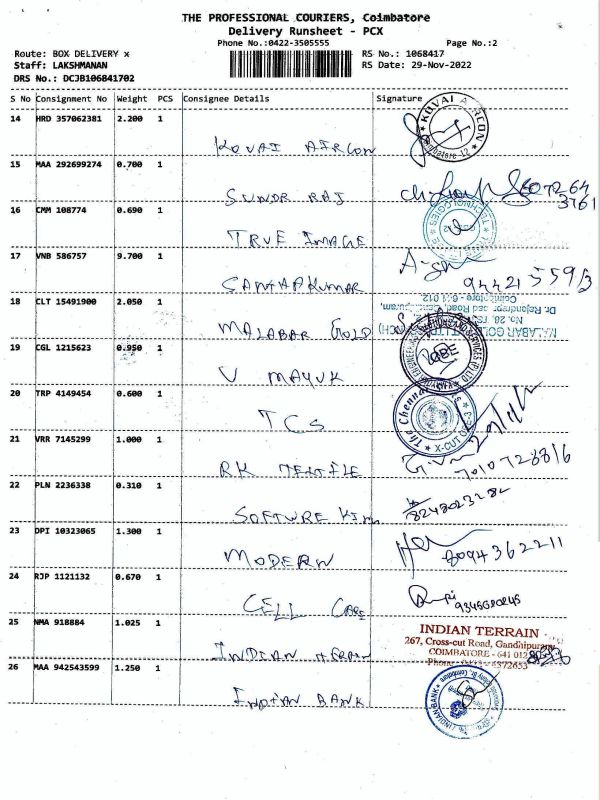 THE PROFESSIONAL COURIERS, Coimbatore
Delivery Runsheet - PCX
Phone No.:0422-3505555 Page No.:2
Route: BOX DELIVERY x RS No.: 1068417
Staff: LAKSHMANAN RS Date: 29-Nov-2022
DRS No.: DCJB106841702
S No Consignment No Weight PCS Consignee Details Signature
14 HRD 357062381 2.200 1
KOVAI AIRCON
KOVAI AIRCON
15 MAA 292699274 0.700 1
SUNDR RAJ
16 CMM 108774 0.690 1
TRUE IMAGE
17 VNB 586757 9.700 1
SANTAPKUMAR
18 CLT 15491900 2.050 1
MALABAR GOLD
19 CGL 1215623 0.950 1
V MAYUK
20 TRP 4149454 0.600 1
The Chennai
X-CUT
TCS
21 VRR 7145299 1.000 1
RK TEXTILE
7010728816
22 PLN 2236338 0.310 1
SOFTWRE KING
23 DPI 10323065 1.300 1
MODERN
8094362211
24 RJP 1121132 0.670 1
CELL CARE
25 NMA 918884 1.025 1
INDIAN TERRAIN
267, Cross-cut Road, Gandhipuram,
COIMBATORE - 641 012
INDIAN TERRAIN
26 MAA 942543599 1.250 1
INDIAN BANK
INDIAN BANK